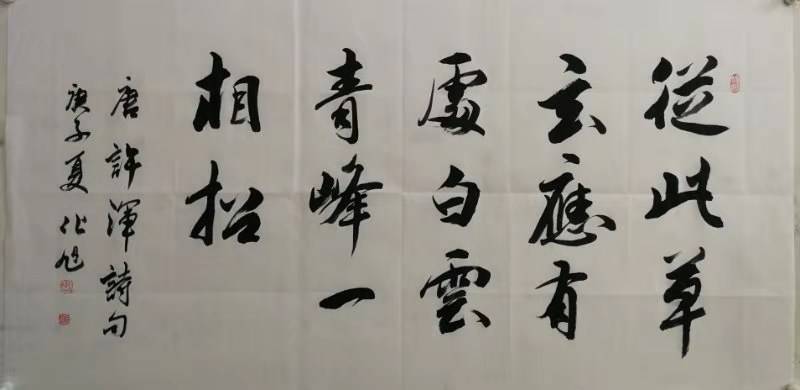 從此草
玄應有
處白雲
青峰一
相招
唐許渾詩句
庚子夏作旭